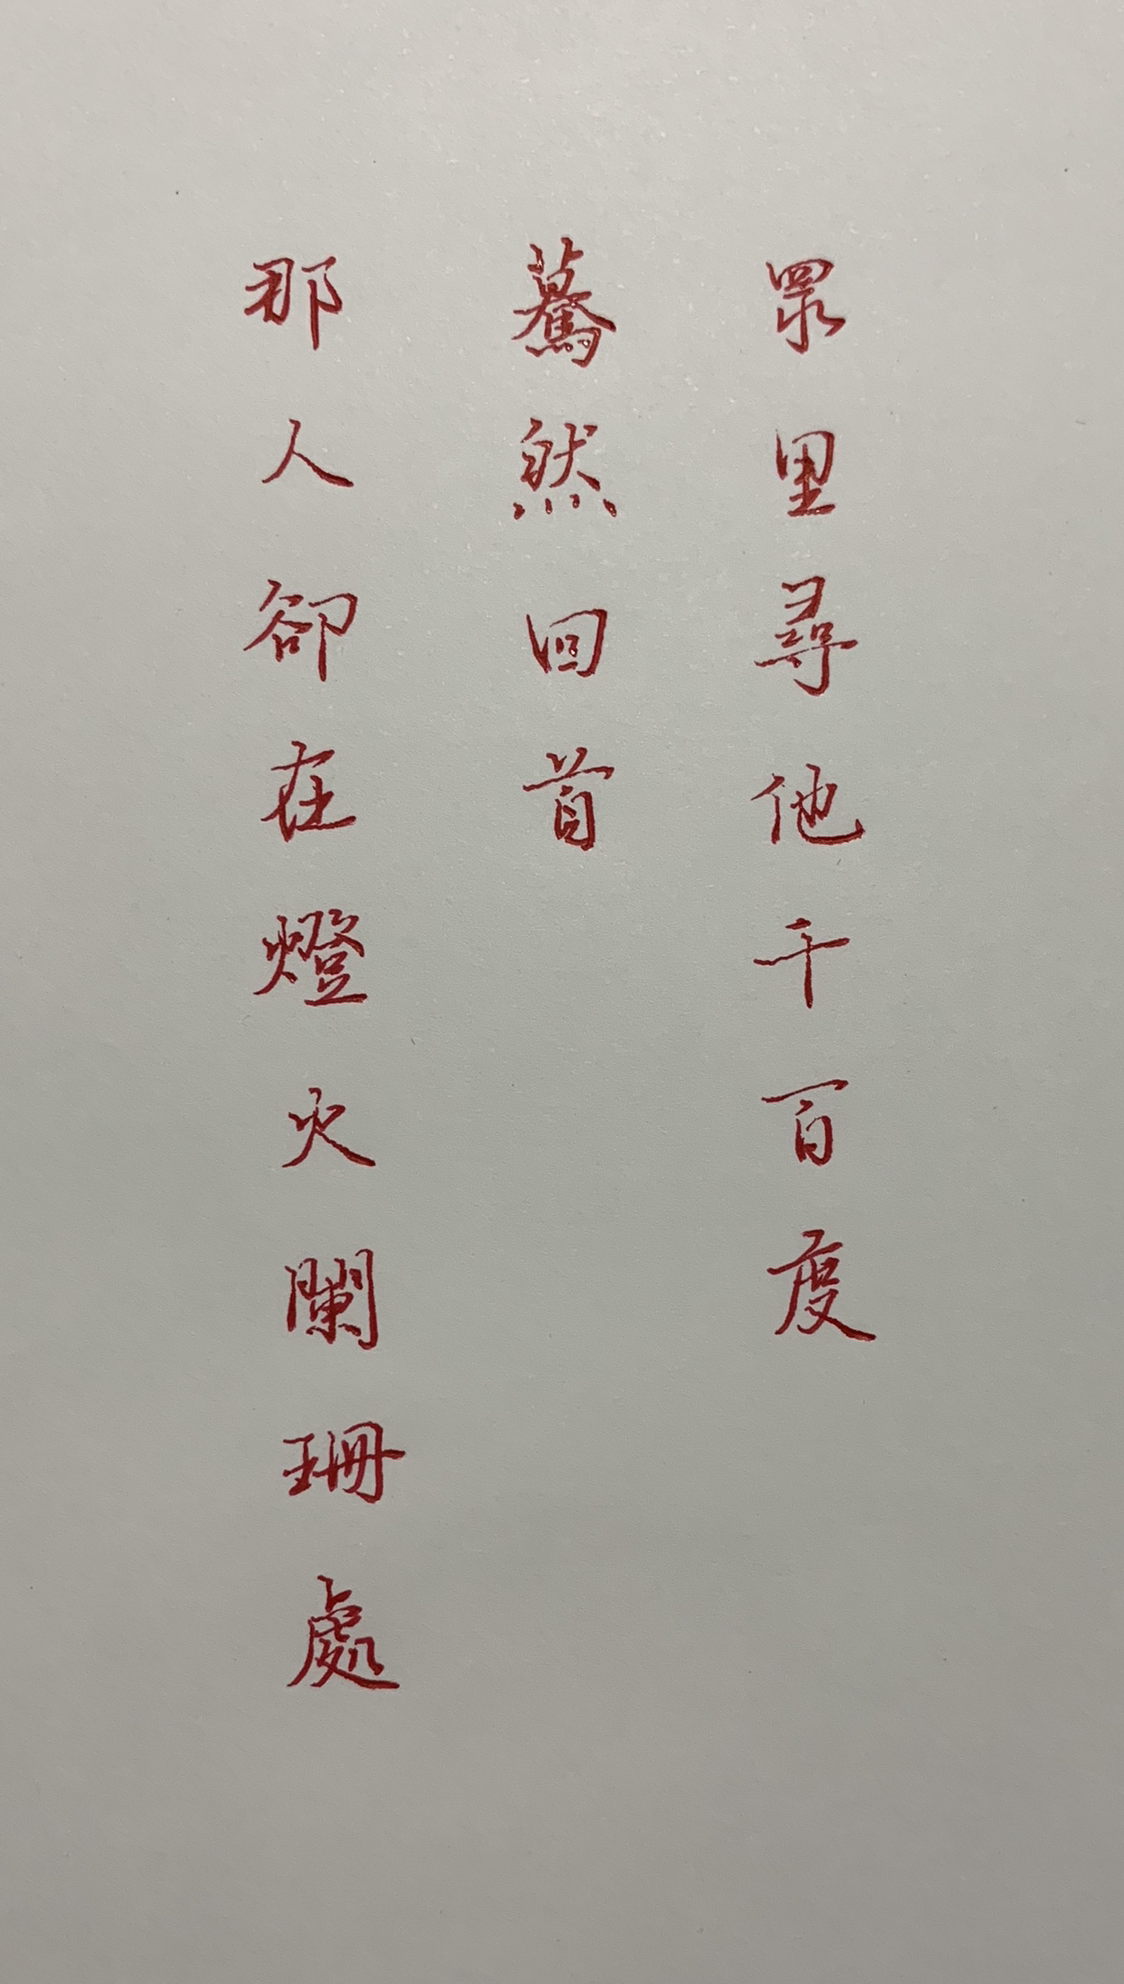 眾里尋他千百度
驀然回首
那人卻在燈火闌珊處